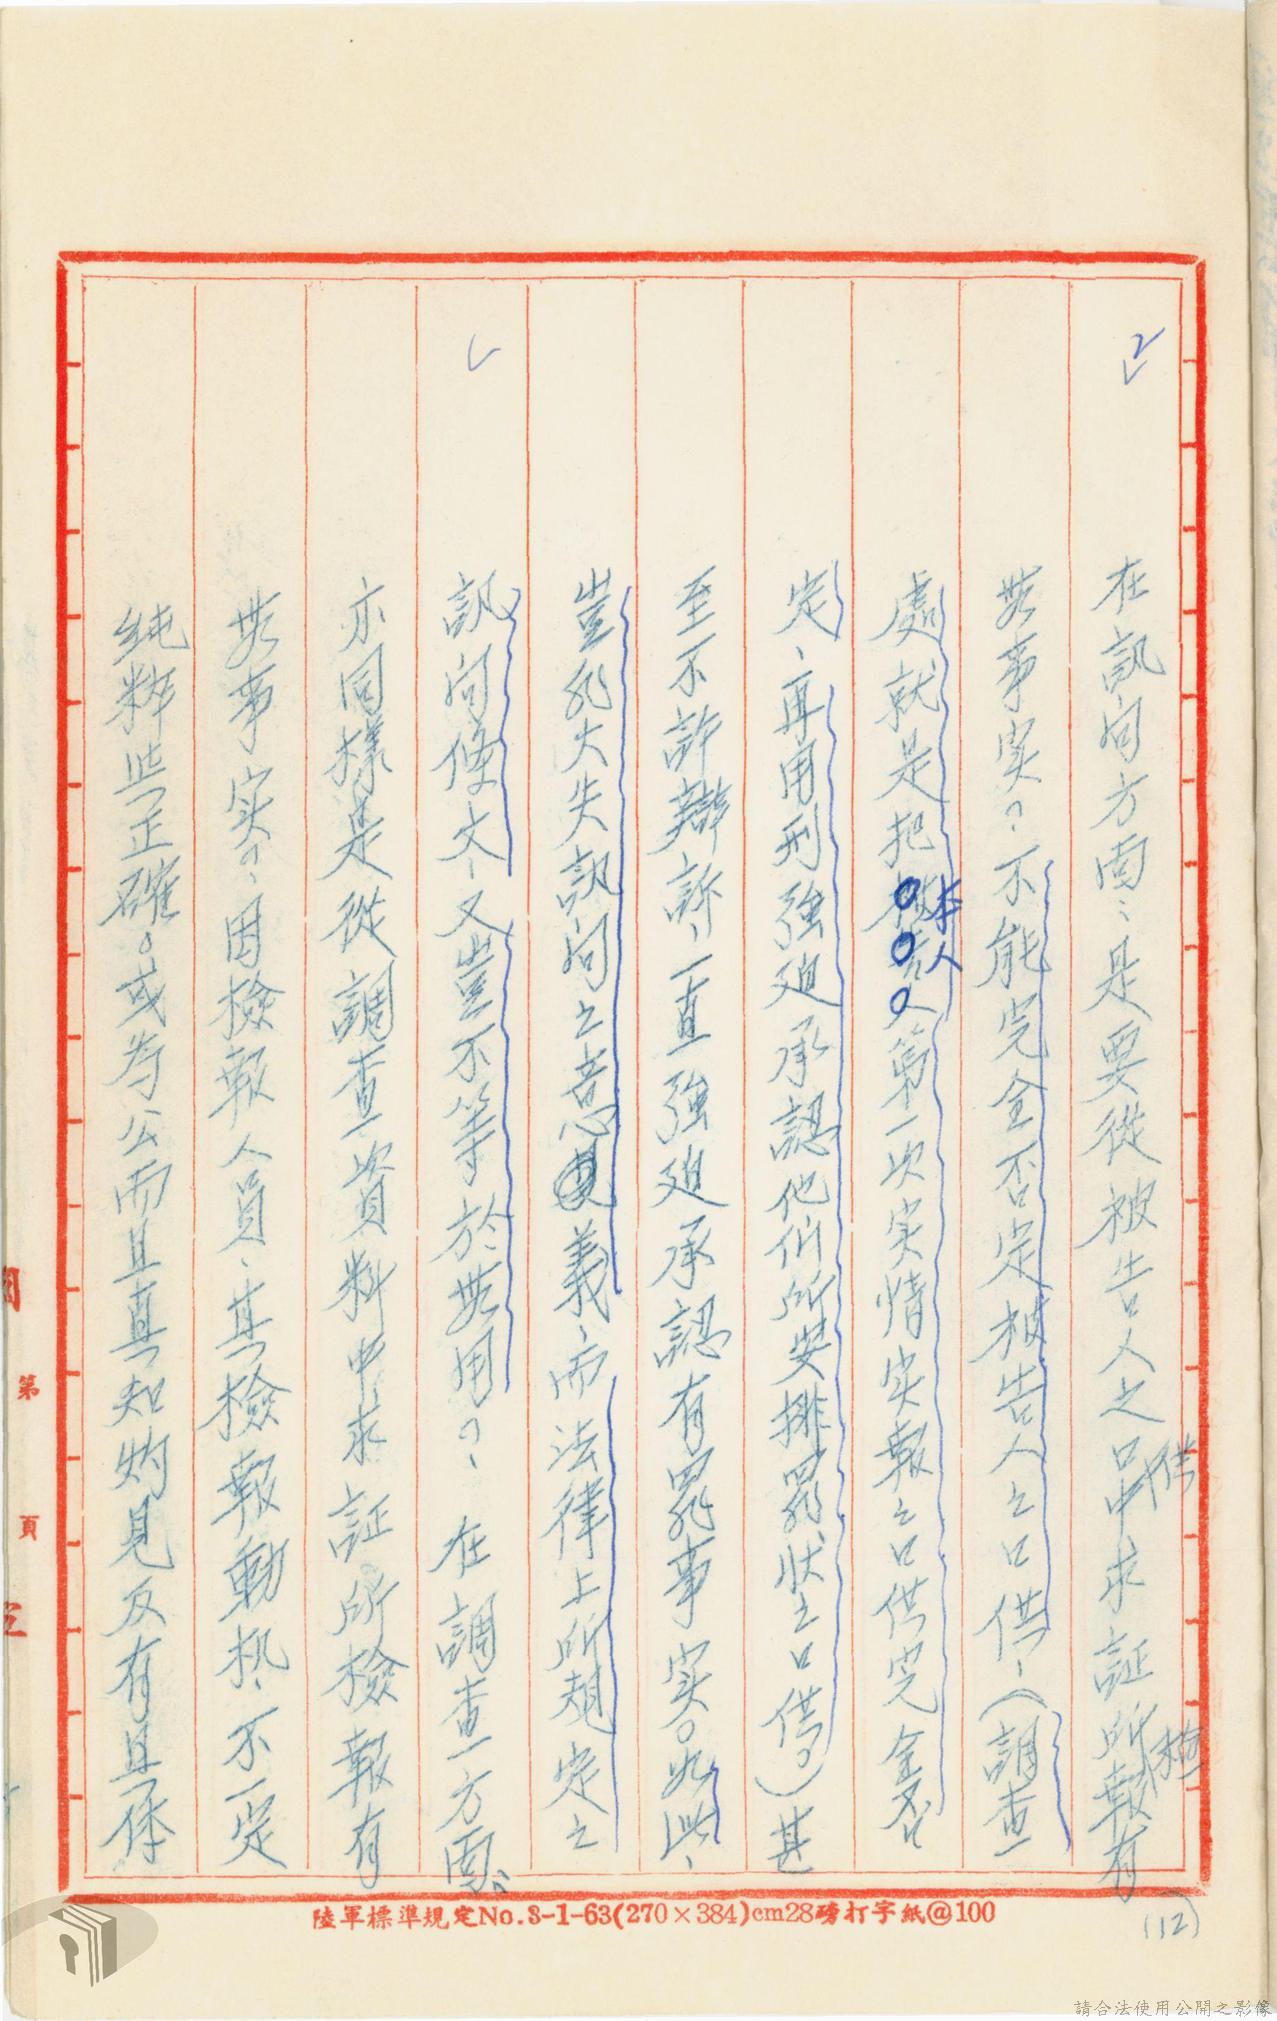 在訊问方面、是要從被告人之口供中求証所檢報有
無事实?、不能完全否定被告人之口供、(調查
處就是把本人第一次实情实報之口供完全否
定、再用刑強廹承認他们所安排罪状之口供。)甚
至不許辯訴、一直強廹承認有罪事实。如此、
豈非大失訊问之意義、而法律上所規定之
訊问條文、又豈不等於無用?、在調查方面、
亦同樣是從調查資料中求証所檢報有
無事实?、因檢報人員、其檢報動机、不一定
純粹些正確。或為公而且真知灼見及有具体
(12)
第 頁
陸軍標準規定No.3-1-63(270×384)cm28磅打字紙@100
請合法使用公開之影像